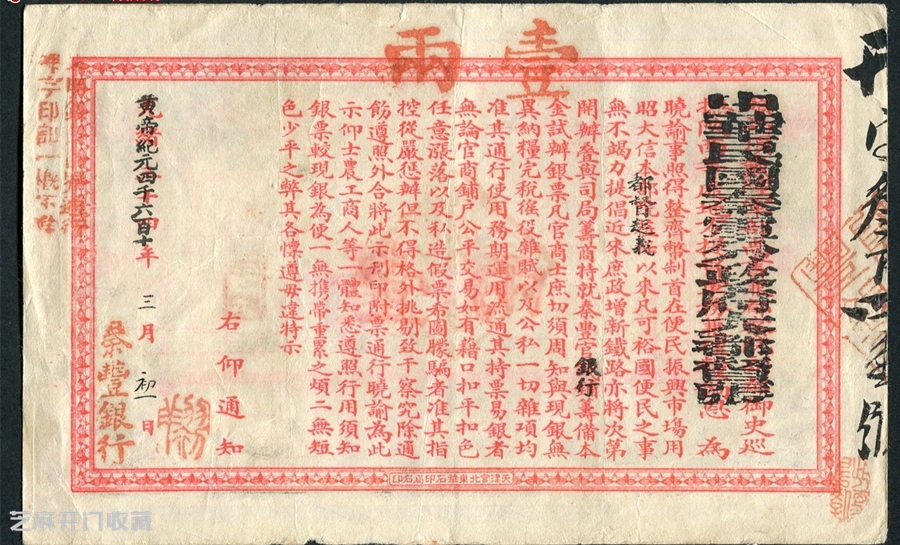 壹兩
中華民國秦
分政府大都督
御史巡
為
曉諭事照得整齊幣制首在便民振興市場用
昭大信本都督起義以來凡可裕國便民之事
無不竭力提倡近來庶政增新鐵路亦將次第
開辦叠與司局籌商特就秦豐官銀行籌備本
金試辦銀票凡官商士庶切須周知與現銀無
異納糧完稅徭役雜賦以及公私一切雜項均
准其通行使用務期運用流通其持票易銀者
無論官商鋪户公平交易如有藉口扣平扣色
任意漲落以及私造假票布圖朦騙者准其指
控從嚴懲辦但不得格外挑剔致干察究除通
飭遵照外合將此示刊印附票通行曉諭為此
示仰士農工商人等一體知悉遵照行用須知
銀票較現銀為便一無攜帶重累之煩二無短
色少平之弊其各懍遵毋違特示
右仰通知
黃帝紀元四千六百十年三月初一日
秦豐銀行
天津宮北東華石印局石印
芝麻开门收藏